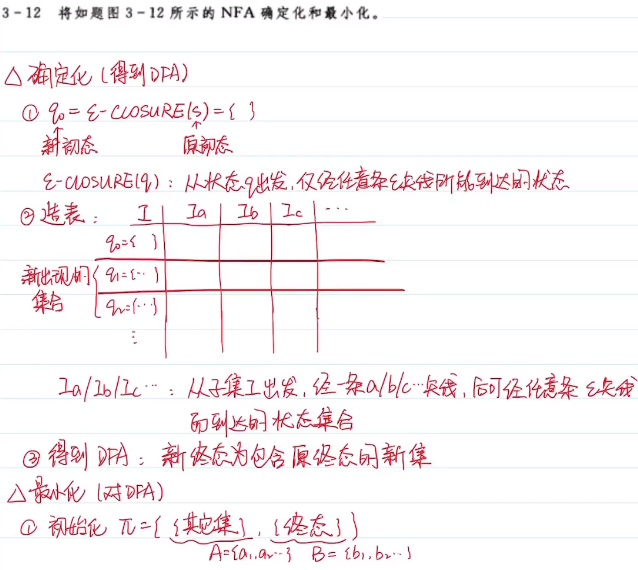 3-12 将如题图 3-12 所示的 NFA 确定化和最小化。
△ 确定化 (得到DFA)
① q₀ = ε-CLOSURE(s) = { }
新初态 原初态
ε-CLOSURE(q): 从状态q出发,仅经任意条ε矢线所能到达的状态
② 造表: I Ia Ib Ic ...
q₀={ }
新出现的集合 q₁={...}
q₂={...}
⋮
Ia/Ib/Ic...: 从子集I出发,经一条a/b/c...矢线,后可经任意条ε矢线
而到达的状态集合
③ 得到DFA: 新终态为包含原终态的新集
△ 最小化 (对DFA)
① 初始化 π={ {其它集}, {终态} }
A={a₁,a₂...} B={b₁,b₂...}